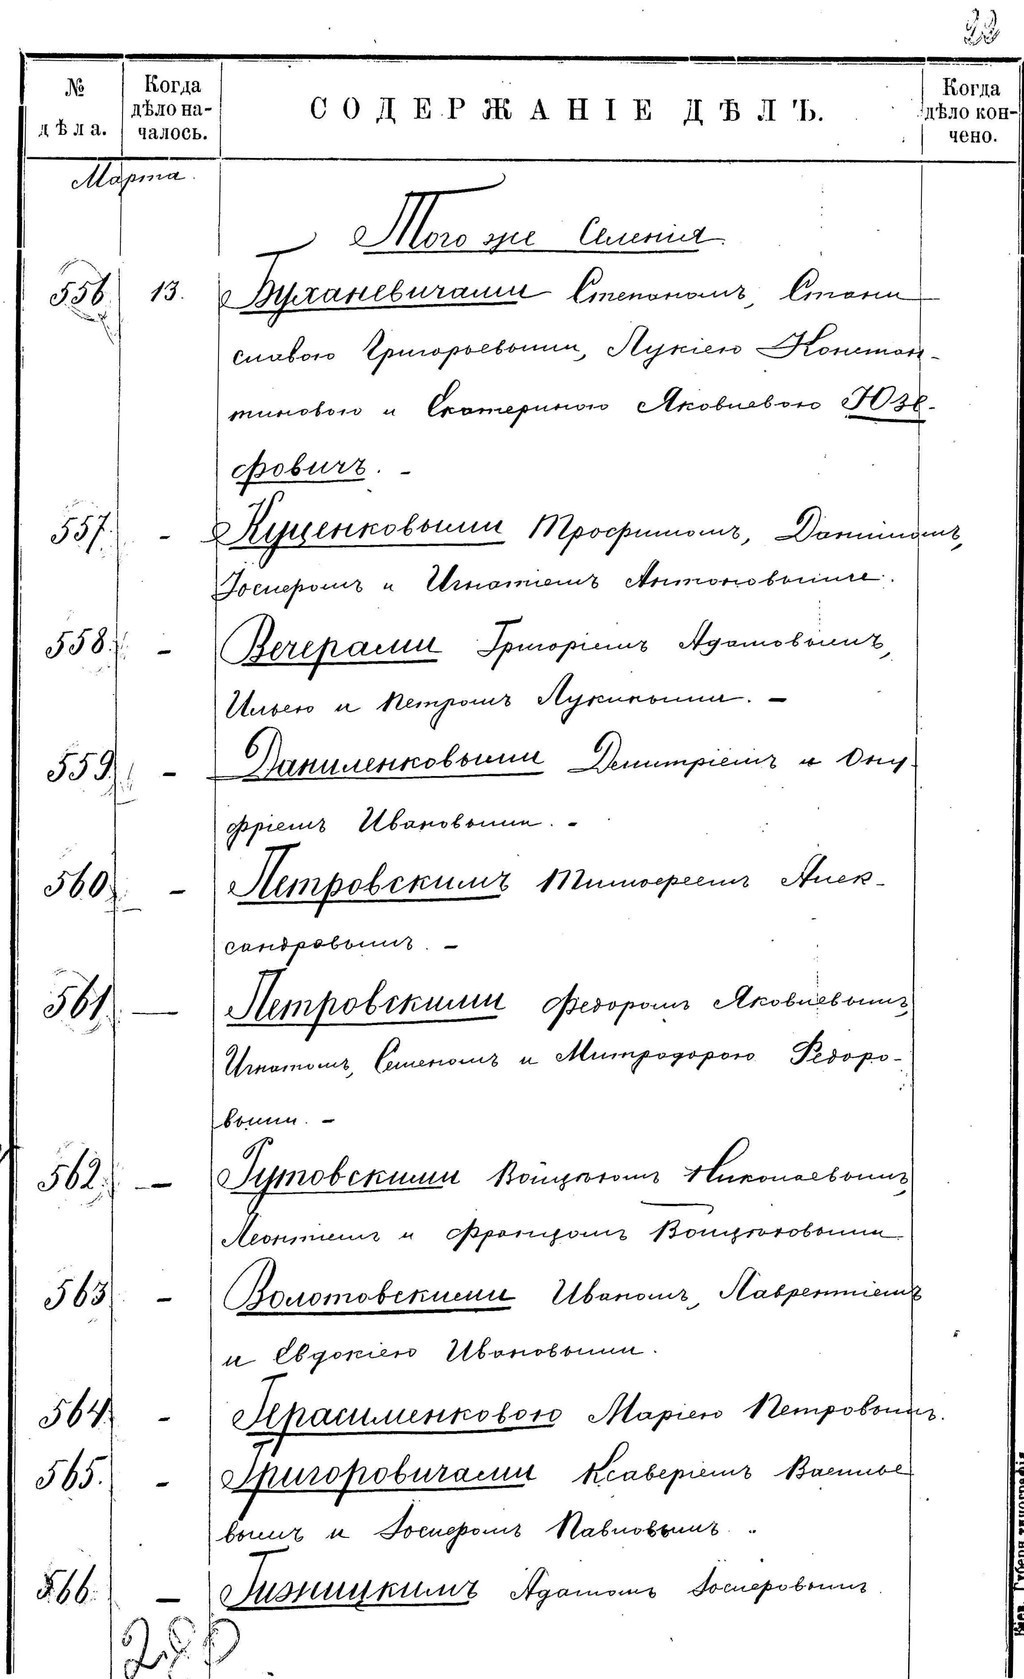 22
№
дѣла.
Когда
дѣло на-
чалось.
СОДЕРЖАНІЕ ДѢЛЪ.
Когда
дѣло кон-
чено.
Марта.
Того же Селенія
556 13. Буханевичами Степаномъ, Стани
славою Григорьевыми, Лукіею Констан-
тиновою и Екатериною Яковлевою Юзе-
фовичъ. -
557. - Куценковыми Трофимомъ, Даніиломъ,
Іосифомъ и Игнатіемъ Антоновыми.
558. - Вечерами Григоріемъ Адамовымъ,
Ильею и Петромъ Лукиными. -
559 - Даниленковыми Дмитріемъ и Ону
фріемъ Ивановыми. -
560 - Петровскимъ Тимофеемъ Алек-
сандровымъ. -
561. - Петровскими Федоромъ Яковлевымъ,
Игнатомъ, Семеномъ и Митродорою Федоро-
выми. -
562. - Гутовскими Войцехомъ Николаевымъ,
Леонтіемъ и Францомъ Войцеховыми
563 - Волотовскими Иваномъ, Лаврентіемъ
и Евдокіею Ивановыми.
564. - Герасименковою Маріею Петровымъ.
565. - Григоровичами Ксаверіемъ Василье
вымъ и Іосифомъ Павловымъ.
566. - Гижицкимъ Адамомъ Іосифовымъ.